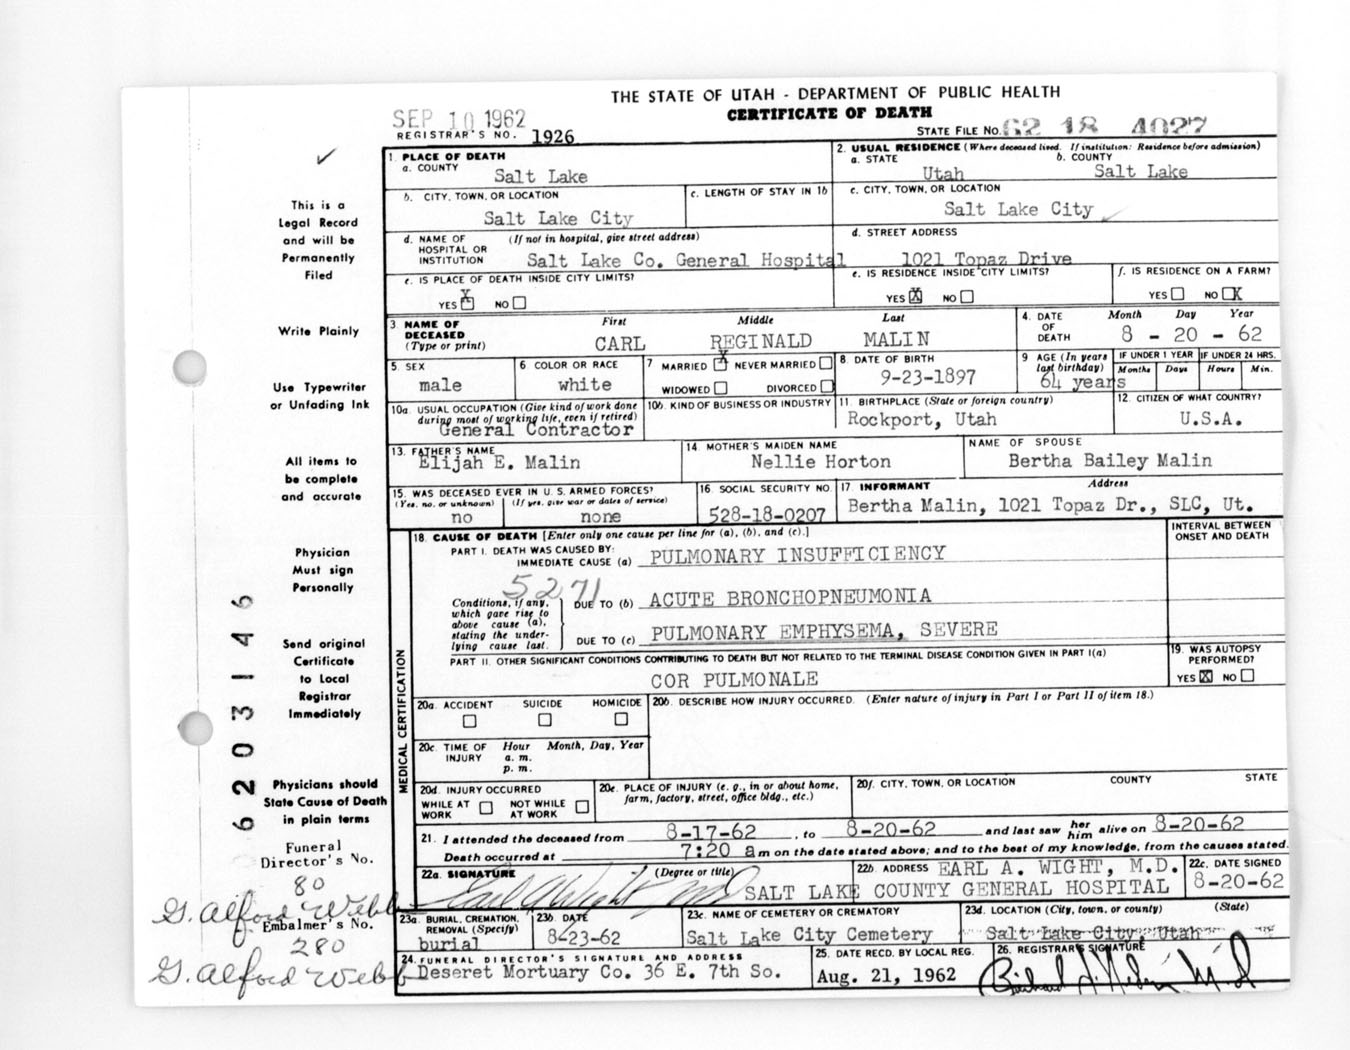 THE STATE OF UTAH - DEPARTMENT OF PUBLIC HEALTH
CERTIFICATE OF DEATH
SEP 10 1962
REGISTRAR'S NO. 1926
STATE FILE NO. 62 18 4027
This is a
Legal Record
and will be
Permanently
Filed
Write Plainly
Use Typewriter
or Unfading Ink
All items to
be complete
and accurate
Physician
Must sign
Personally
Send original
Certificate
to Local
Registrar
Immediately
Physicians should
State Cause of Death
in plain terms
Funeral
Director's No.
80
G. Alford Webb
Embalmer's No.
280
G. Alford Webb
62031446
1. PLACE OF DEATH
a. COUNTY
Salt Lake
2. USUAL RESIDENCE (Where deceased lived. If institution: Residence before admission)
a. STATE b. COUNTY
Utah Salt Lake
b. CITY, TOWN, OR LOCATION
Salt Lake City
c. LENGTH OF STAY IN 1b
c. CITY, TOWN, OR LOCATION
Salt Lake City
d. NAME OF (If not in hospital, give street address)
HOSPITAL OR
INSTITUTION Salt Lake Co. General Hospital
d. STREET ADDRESS
1021 Topaz Drive
e. IS PLACE OF DEATH INSIDE CITY LIMITS?
YES X NO
e. IS RESIDENCE INSIDE CITY LIMITS?
YES X NO
f. IS RESIDENCE ON A FARM?
YES NO X
3. NAME OF
DECEASED
(Type or print)
First Middle Last
CARL REGINALD MALIN
4. DATE
OF
DEATH
Month Day Year
8 - 20 - 62
5. SEX
male
6. COLOR OR RACE
white
7 MARRIED X NEVER MARRIED
WIDOWED DIVORCED
8. DATE OF BIRTH
9-23-1897
9 AGE (In years
last birthday)
64 years
IF UNDER 1 YEAR IF UNDER 24 HRS.
Months Days Hours Min.
10a. USUAL OCCUPATION (Give kind of work done
during most of working life, even if retired)
General Contractor
10b. KIND OF BUSINESS OR INDUSTRY
11. BIRTHPLACE (State or foreign country)
Rockport, Utah
12. CITIZEN OF WHAT COUNTRY?
U.S.A.
13. FATHER'S NAME
Elijah E. Malin
14 MOTHER'S MAIDEN NAME
Nellie Horton
NAME OF SPOUSE
Bertha Bailey Malin
15. WAS DECEASED EVER IN U. S. ARMED FORCES?
(Yes, no, or unknown) (If yes, give war or dates of service)
no none
16. SOCIAL SECURITY NO.
528-18-0207
17. INFORMANT Address
Bertha Malin, 1021 Topaz Dr., SLC, Ut.
MEDICAL CERTIFICATION
18. CAUSE OF DEATH [Enter only one cause per line for (a), (b), and (c).]
INTERVAL BETWEEN
ONSET AND DEATH
PART I. DEATH WAS CAUSED BY:
IMMEDIATE CAUSE (a) PULMONARY INSUFFICIENCY
5271
Conditions, if any,
which gave rise to
above cause (a),
stating the under-
lying cause last.
DUE TO (b) ACUTE BRONCHOPNEUMONIA
DUE TO (c) PULMONARY EMPHYSEMA, SEVERE
PART II. OTHER SIGNIFICANT CONDITIONS CONTRIBUTING TO DEATH BUT NOT RELATED TO THE TERMINAL DISEASE CONDITION GIVEN IN PART I(a)
COR PULMONALE
19. WAS AUTOPSY
PERFORMED?
YES X NO
20a. ACCIDENT SUICIDE HOMICIDE
20b. DESCRIBE HOW INJURY OCCURRED. (Enter nature of injury in Part I or Part II of item 18.)
20c. TIME OF Hour Month, Day, Year
INJURY a. m.
p. m.
20d. INJURY OCCURRED
WHILE AT NOT WHILE
WORK AT WORK
20e. PLACE OF INJURY (e. g., in or about home,
farm, factory, street, office bldg., etc.)
20f. CITY, TOWN, OR LOCATION COUNTY STATE
21. I attended the deceased from 8-17-62, to 8-20-62 and last saw her him alive on 8-20-62
Death occurred at 7:20 a m on the date stated above; and to the best of my knowledge, from the causes stated.
22a. SIGNATURE (Degree or title)
Earl A Wight MD
22b. ADDRESS EARL A. WIGHT, M.D.
SALT LAKE COUNTY GENERAL HOSPITAL
22c. DATE SIGNED
8-20-62
23a. BURIAL, CREMATION,
REMOVAL (Specify)
burial
23b. DATE
8-23-62
23c. NAME OF CEMETERY OR CREMATORY
Salt Lake City Cemetery
23d. LOCATION (City, town, or county) (State)
Salt Lake City, Utah
24. FUNERAL DIRECTOR'S SIGNATURE AND ADDRESS
Deseret Mortuary Co. 36 E. 7th So.
25. DATE RECD. BY LOCAL REG.
Aug. 21, 1962
26. REGISTRAR'S SIGNATURE